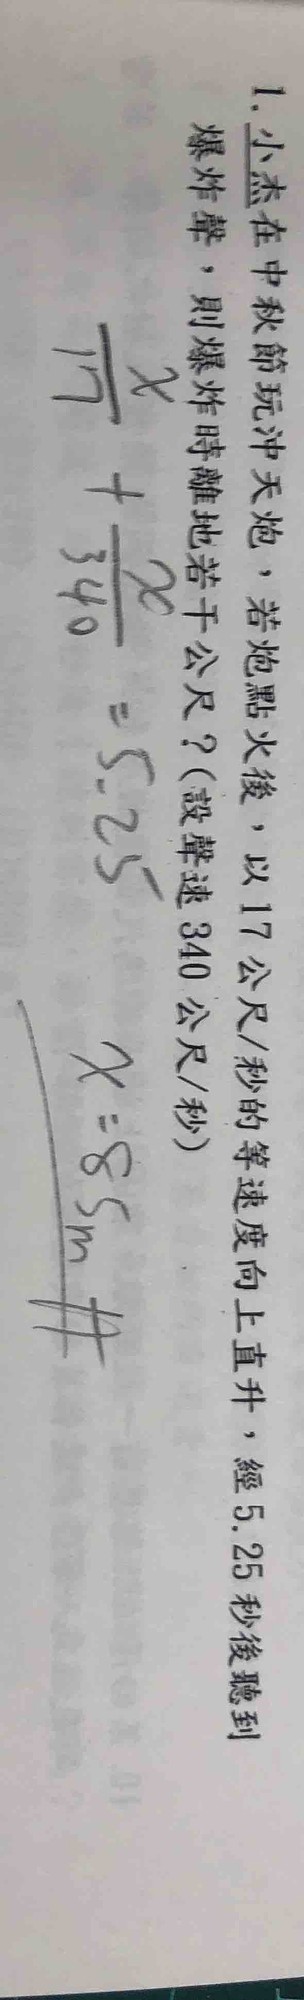 1. 小杰在中秋節玩沖天炮，若炮點火後，以 17 公尺/秒的等速度向上直升，經 5.25 秒後聽到
爆炸聲，則爆炸時離地若干公尺？(設聲速 340 公尺/秒)
x/17 + x/340 = 5.25 x = 85m #